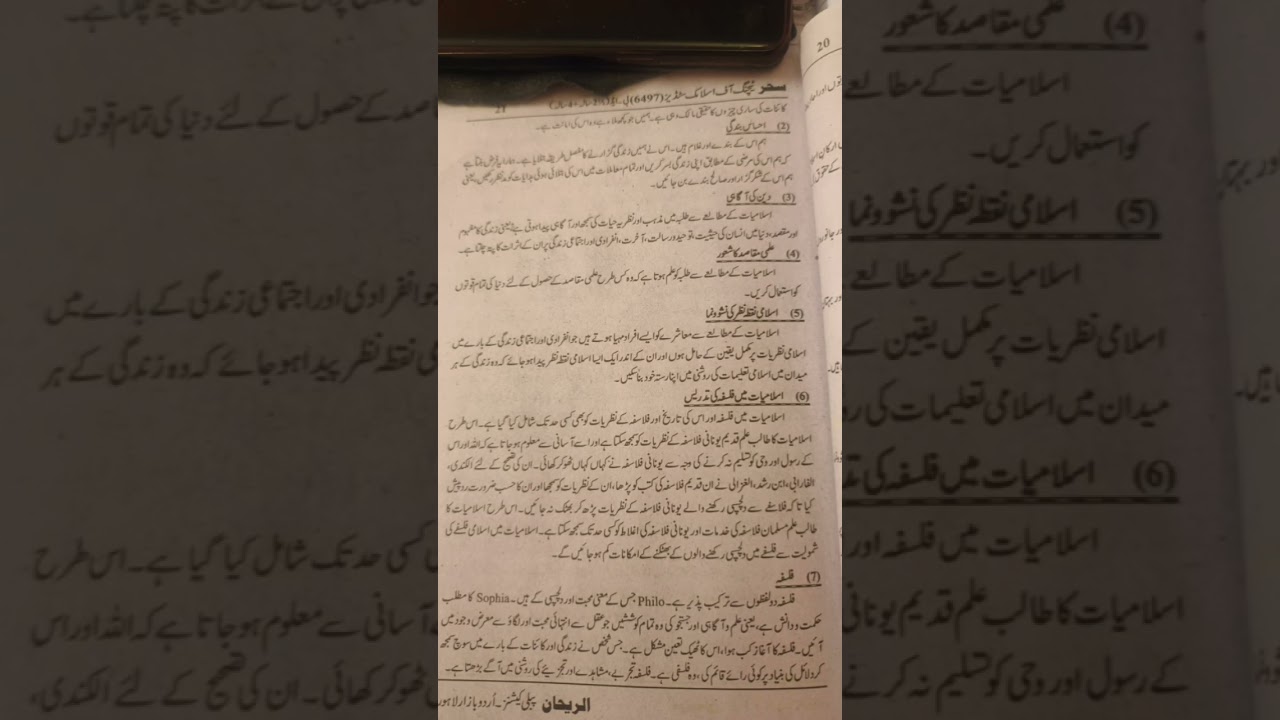 سحر ٹیچنگ آف اسلامک سٹڈیز (6497) بی۔ایڈ
21
کائنات کی ساری چیزوں کا حقیقی مالک وہی ہے۔ ہمیں جو کچھ ملا ہے وہ اس کی امانت ہے۔
(2) احساس بندگی
ہم اس کے بندے اور غلام ہیں۔ اس نے ہمیں زندگی گزارنے کا مفصل طریقہ بتلایا ہے۔ ہمارا یہ فرض بنتا ہے
کہ ہم اس کی مرضی کے مطابق اپنی زندگی بسر کریں اور تمام معاملات میں اس کی بتلائی ہوئی ہدایات کو مدنظر رکھیں، یعنی
ہم اس کے شکر گزار اور صالح بندے بن جائیں۔
(3) دین کی آگاہی
اسلامیات کے مطالعے سے طلبہ میں مذہب اور نظریہ حیات کی سمجھ اور آگاہی پیدا ہوتی ہے یعنی زندگی کا مفہوم
اور مقصد، دنیا میں انسان کی حیثیت، توحید و رسالت، آخرت، انفرادی اور اجتماعی زندگی پر ان کے اثرات کا پتہ چلتا ہے۔
(4) علمی مقاصد کا شعور
اسلامیات کے مطالعے سے طلبہ کو علم ہوتا ہے کہ وہ کس طرح علمی مقاصد کے حصول کے لئے دنیا کی تمام قوتوں
کو استعمال کریں۔
(5) اسلامی نقطہ نظر کی نشوونما
اسلامیات کے مطالعے سے معاشرے کو ایسے افراد مہیا ہوتے ہیں جو انفرادی اور اجتماعی زندگی کے بارے میں
اسلامی نظریات پر مکمل یقین کے حامل ہوں اور ان کے اندر ایک ایسا اسلامی نقطہ نظر پیدا ہو جائے کہ وہ زندگی کے ہر
میدان میں اسلامی تعلیمات کی روشنی میں اپنا رستہ خود بنا سکیں۔
(6) اسلامیات میں فلسفہ کی تدریس
اسلامیات میں فلسفہ اور اس کی تاریخ اور فلاسفہ کے نظریات کو بھی کسی حد تک شامل کیا گیا ہے۔ اس طرح
اسلامیات کا طالب علم قدیم یونانی فلاسفہ کے نظریات کو سمجھ سکتا ہے اور اسے آسانی سے معلوم ہو جاتا ہے کہ اللہ اور اس
کے رسول اور وحی کو تسلیم نہ کرنے کی وجہ سے یونانی فلاسفہ نے کہاں کہاں ٹھوکر کھائی۔ ان کی تصحیح کے لئے الکندی،
الفارابی، ابن رشد، الغزالی نے ان قدیم فلاسفہ کی کتب کو پڑھا، ان کے نظریات کو سمجھا اور ان کا حسب ضرورت رد پیش
کیا تاکہ فلاسفے سے دلچسپی رکھنے والے یونانی فلاسفہ کے نظریات پڑھ کر بھٹک نہ جائیں۔ اس طرح اسلامیات کا
طالب علم مسلمان فلاسفہ کی خدمات اور یونانی فلاسفہ کی اغلاط کو کسی حد تک سمجھ سکتا ہے۔ اسلامیات میں اسلامی فلسفے کی
شمولیت سے فلسفے میں دلچسپی رکھنے والوں کے بھٹکنے کے امکانات کم ہو جائیں گے۔
(7) فلسفہ
فلسفہ دو لفظوں سے ترکیب پذیر ہے۔ Philo جس کے معنی محبت اور دلچسپی کے ہیں۔ Sophia کا مطلب
حکمت و دانش ہے، یعنی علم و آگاہی اور جستجو کی وہ تمام کوششیں جو عقل سے انتہائی محبت اور لگاؤ سے معرض وجود میں
آئیں۔ فلسفہ کا آغاز کب ہوا، اس کا ٹھیک تعین مشکل ہے۔ جس شخص نے زندگی اور کائنات کے بارے میں سوچ سمجھ
کر دلائل کی بنیاد پر کوئی رائے قائم کی، وہ فلسفی ہے۔ فلسفہ تجربے، مشاہدے اور تجزیئے کی روشنی میں آگے بڑھتا ہے۔
الریحان پبلی کیشنز۔ اُردو بازار لاہور
20